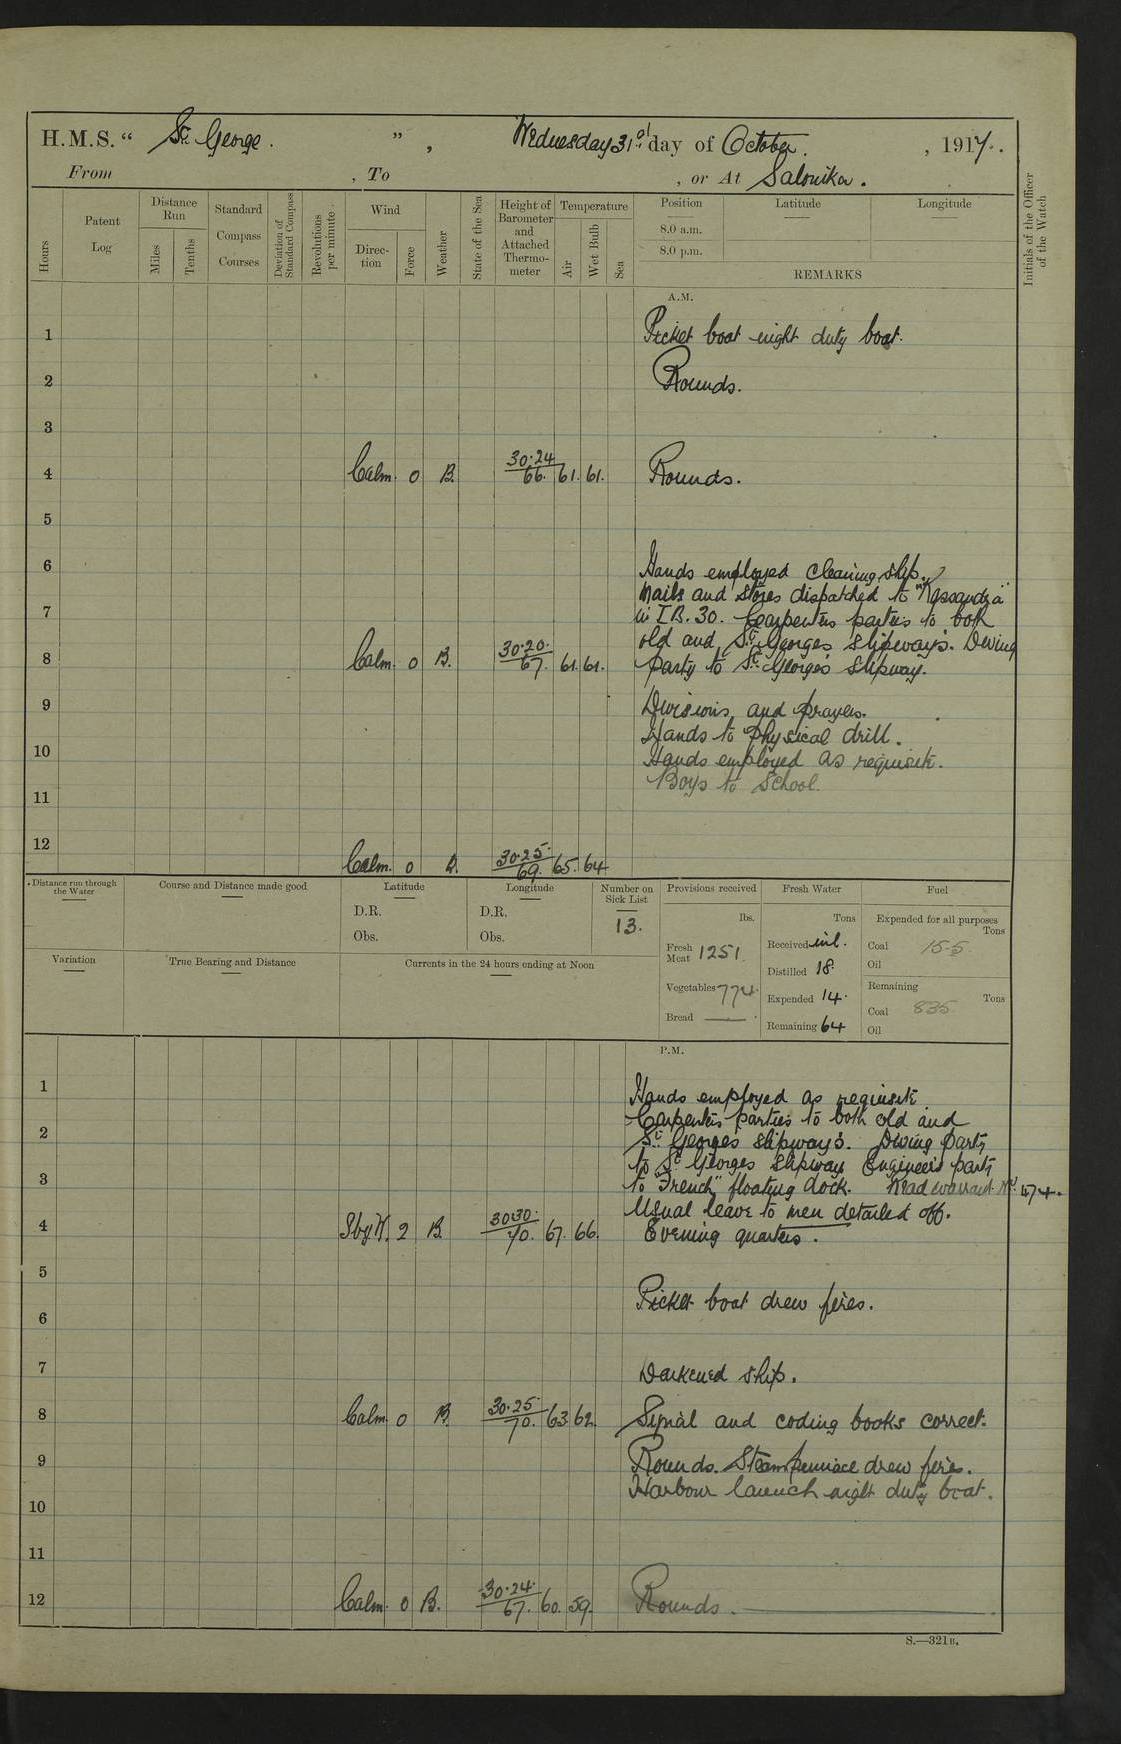 H.M.S. " St. George. " , Wednesday 31st day of October. , 1917.
From , To , or At Salonika.
Hours
Patent Log
Distance Run
Miles
Tenths
Standard Compass Courses
Deviation of Standard Compass
Revolutions per minute
Wind
Direction
Force
Weather
State of the Sea
Height of Barometer and Attached Thermometer
Temperature
Air
Wet Bulb
Sea
Position
8.0 a.m.
8.0 p.m.
Latitude
Longitude
REMARKS
Initials of the Officer of the Watch
A.M.
1 Picket boat night duty boat.
2 Rounds.
3
4 Calm. 0 B. 30.24 66. 61. 61. Rounds.
5
6 Hands employed cleaning ship.
Mails and stores dispatched to "Kassandra"
7 in I.B. 30. Carpenters parties to both
old and St. Georges slipways. Diving
8 Calm. 0 B. 30.20. 67. 61. 61. party to St. Georges slipway.
9 Divisions and prayers.
Hands to Physical drill.
10 Hands employed as requisite.
Boys to School.
11
12 Calm. 0 B. 30.25. 69. 65. 64
Distance run through the Water
Course and Distance made good
Latitude
D.R.
Obs.
Longitude
D.R.
Obs.
Number on Sick List
13.
Provisions received
lbs.
Fresh Meat 1251
Vegetables 774.
Bread —
Fresh Water
Tons
Received nil.
Distilled 18.
Expended 14.
Remaining 64
Fuel
Expended for all purposes
Tons
Coal 15.5
Oil
Remaining
Tons
Coal 835
Oil
Variation
True Bearing and Distance
Currents in the 24 hours ending at Noon
P.M.
1 Hands employed as requisite
Carpenters parties to both old and
2 St. Georges slipways. Diving party
to St. Georges slipway Engineers party
3 to "French" floating dock. Read warrant No. 474.
Usual leave to men detailed off.
4 SbyW. 2 B. 30.30. 70. 67. 66. Evening quarters.
5
Picket boat drew fires.
6
7 Darkened ship.
8 Calm 0 B. 30.25 70. 63 62. Signal and coding books correct.
9 Rounds. Steam pinnace drew fires.
Harbour launch night duty boat.
10
11
12 Calm. 0 B. 30.24. 67. 60. 59. Rounds.
S.—321B.